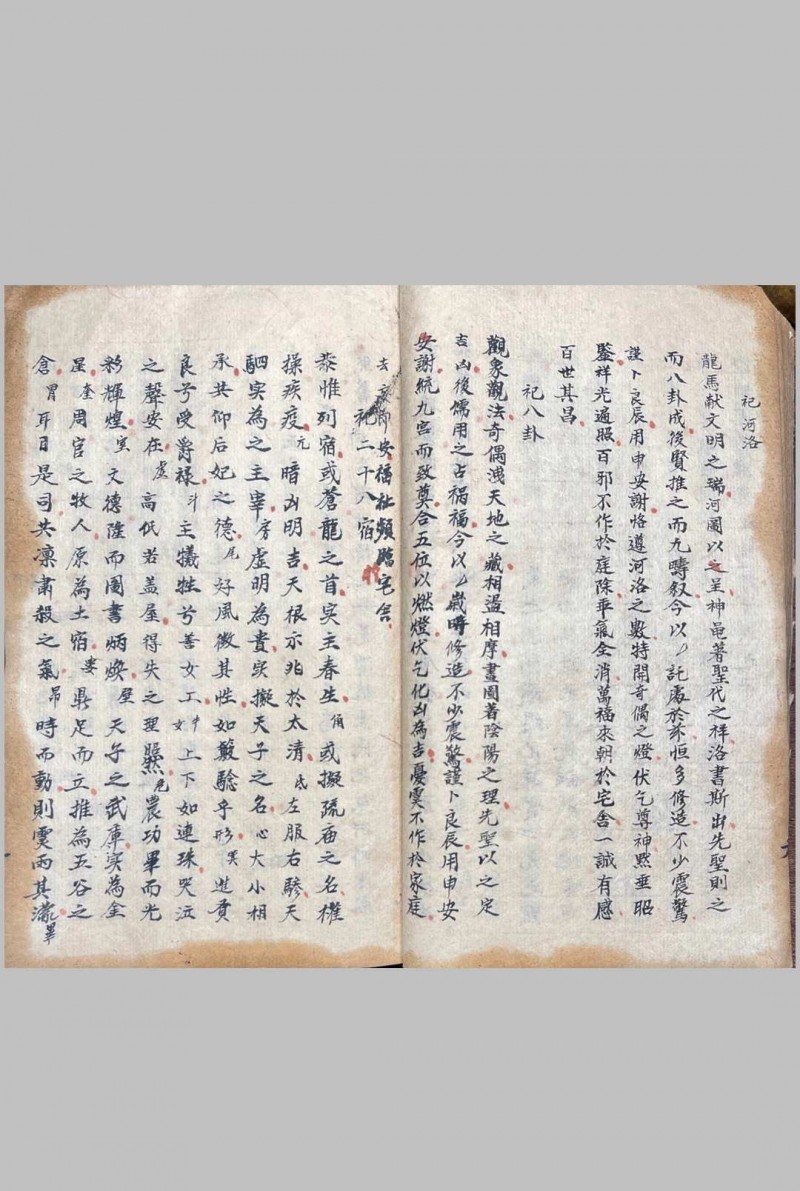 祀河洛
龍馬献文明之瑞河圖以之呈神黽著聖代之祥洛書斯出先聖則之
而八卦成後賢推之而九疇叙今以託處於茲恒多修造不少震驚
謹卜良辰用申安謝恪遵河洛之數特開奇偶之燈伏乞尊神黙垂昭
鑒祥光遍照百邪不作於庭除乖氣全消萬福來朝於宅舍一誠有感
百世其昌
祀八卦
觀象觀法奇偶洩天地之藏相盪相摩畫圖著陰陽之理先聖以之定
吉凶後儒用之占禍福今以歲時修造不少震驚謹卜良辰用申安
安謝統九宮而致奠合五位以燃燈伏乞化凶為吉憂虞不作於家庭
去即安福祉頻臨宅舍
祀二十八宿
恭惟列宿或蒼龍之首实主春生角或擬疏庙之名權
操疾疫亢暗凶明吉天根示兆於太清氐左服右驂天
駟实為之主宰房虛明為貴实擬天子之名心大小相
承共仰后妃之德尾好風微其性如簸騐乎形箕進賢
良兮受爵禄斗主犧牲兮善女工牛女上下如連珠哭泣
之聲安在虛高低若盖屋得失之理照然危農功畢而光
彩輝煌室文德隆而圖書炳煥壁天子之武庫实為金
星奎周官之牧人原為土宿婁鼎足而立推為五谷之
倉胃耳目是司共凛肅殺之氣昴時而動則雲雨其濛畢